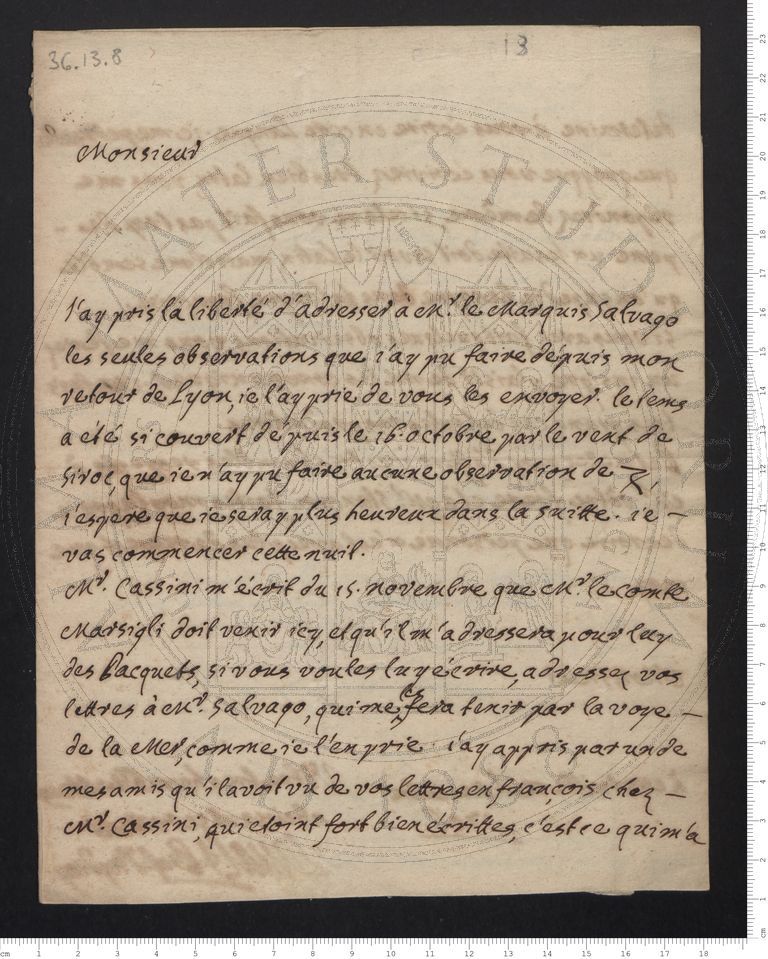 36.13.8
13
Monsieur
J'ay pris la liberté d'adresser à Mr. le Marquis Salvago
les seules observations que i'ay pu faire dépuis mon
retour de Lyon, ie l'ay prié de vous les envoyer. le tems
a eté si couvert dépuis le 16. octobre par le vent de
Siroc, que ie n'ay pu faire aucune observation de ♃,
i'espere que ie seray plus heureux dans la suitte. ie –
vas commencer cette nuit.
Mr. Cassini m'écrit du 15. novembre que Mr. le comte
Marsigli doit venir icy, et qu'il m'adressera pour luy
des Pacquets, si vous voules luy écrire, adressez vos
lettres à Mr. Salvago, qui me les fera tenir par la voye –
de la Mer, comme ie l'en prie. i'ay appris par un de
mes amis qu'il avoit vu de vos lettres en françois chez –
Mr. Cassini, qui etoint fort bien écrittes, c'est ce qui m'a